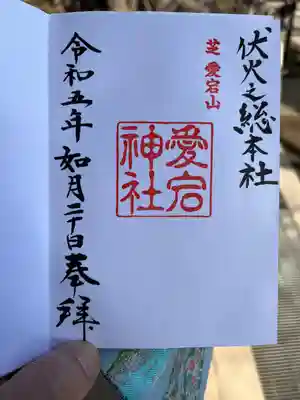 伏火之総本社
芝愛宕山
愛宕
神社
令和五年如月二十日奉拝